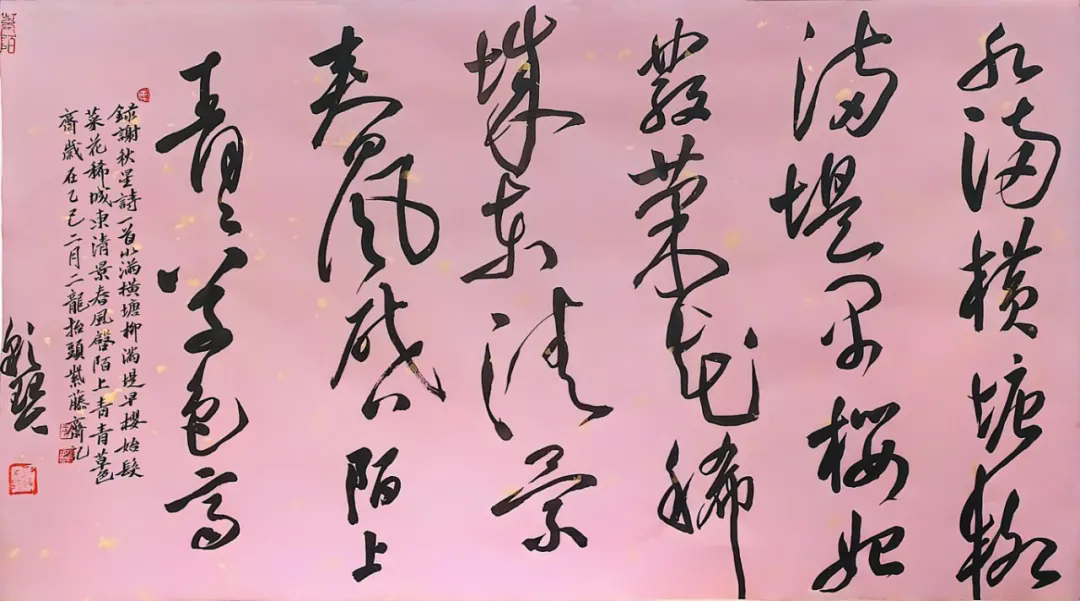 水満横塘柳
満堤早櫻始
發菜花稀
城东清景
春風啓陌上
青青草色齊
錄謝秋星詩一首水滿橫塘柳滿堤早櫻始發
菜花稀城東清景春風啓陌上青青草色
齊歲在乙巳二月二龍抬頭紫藤齋記